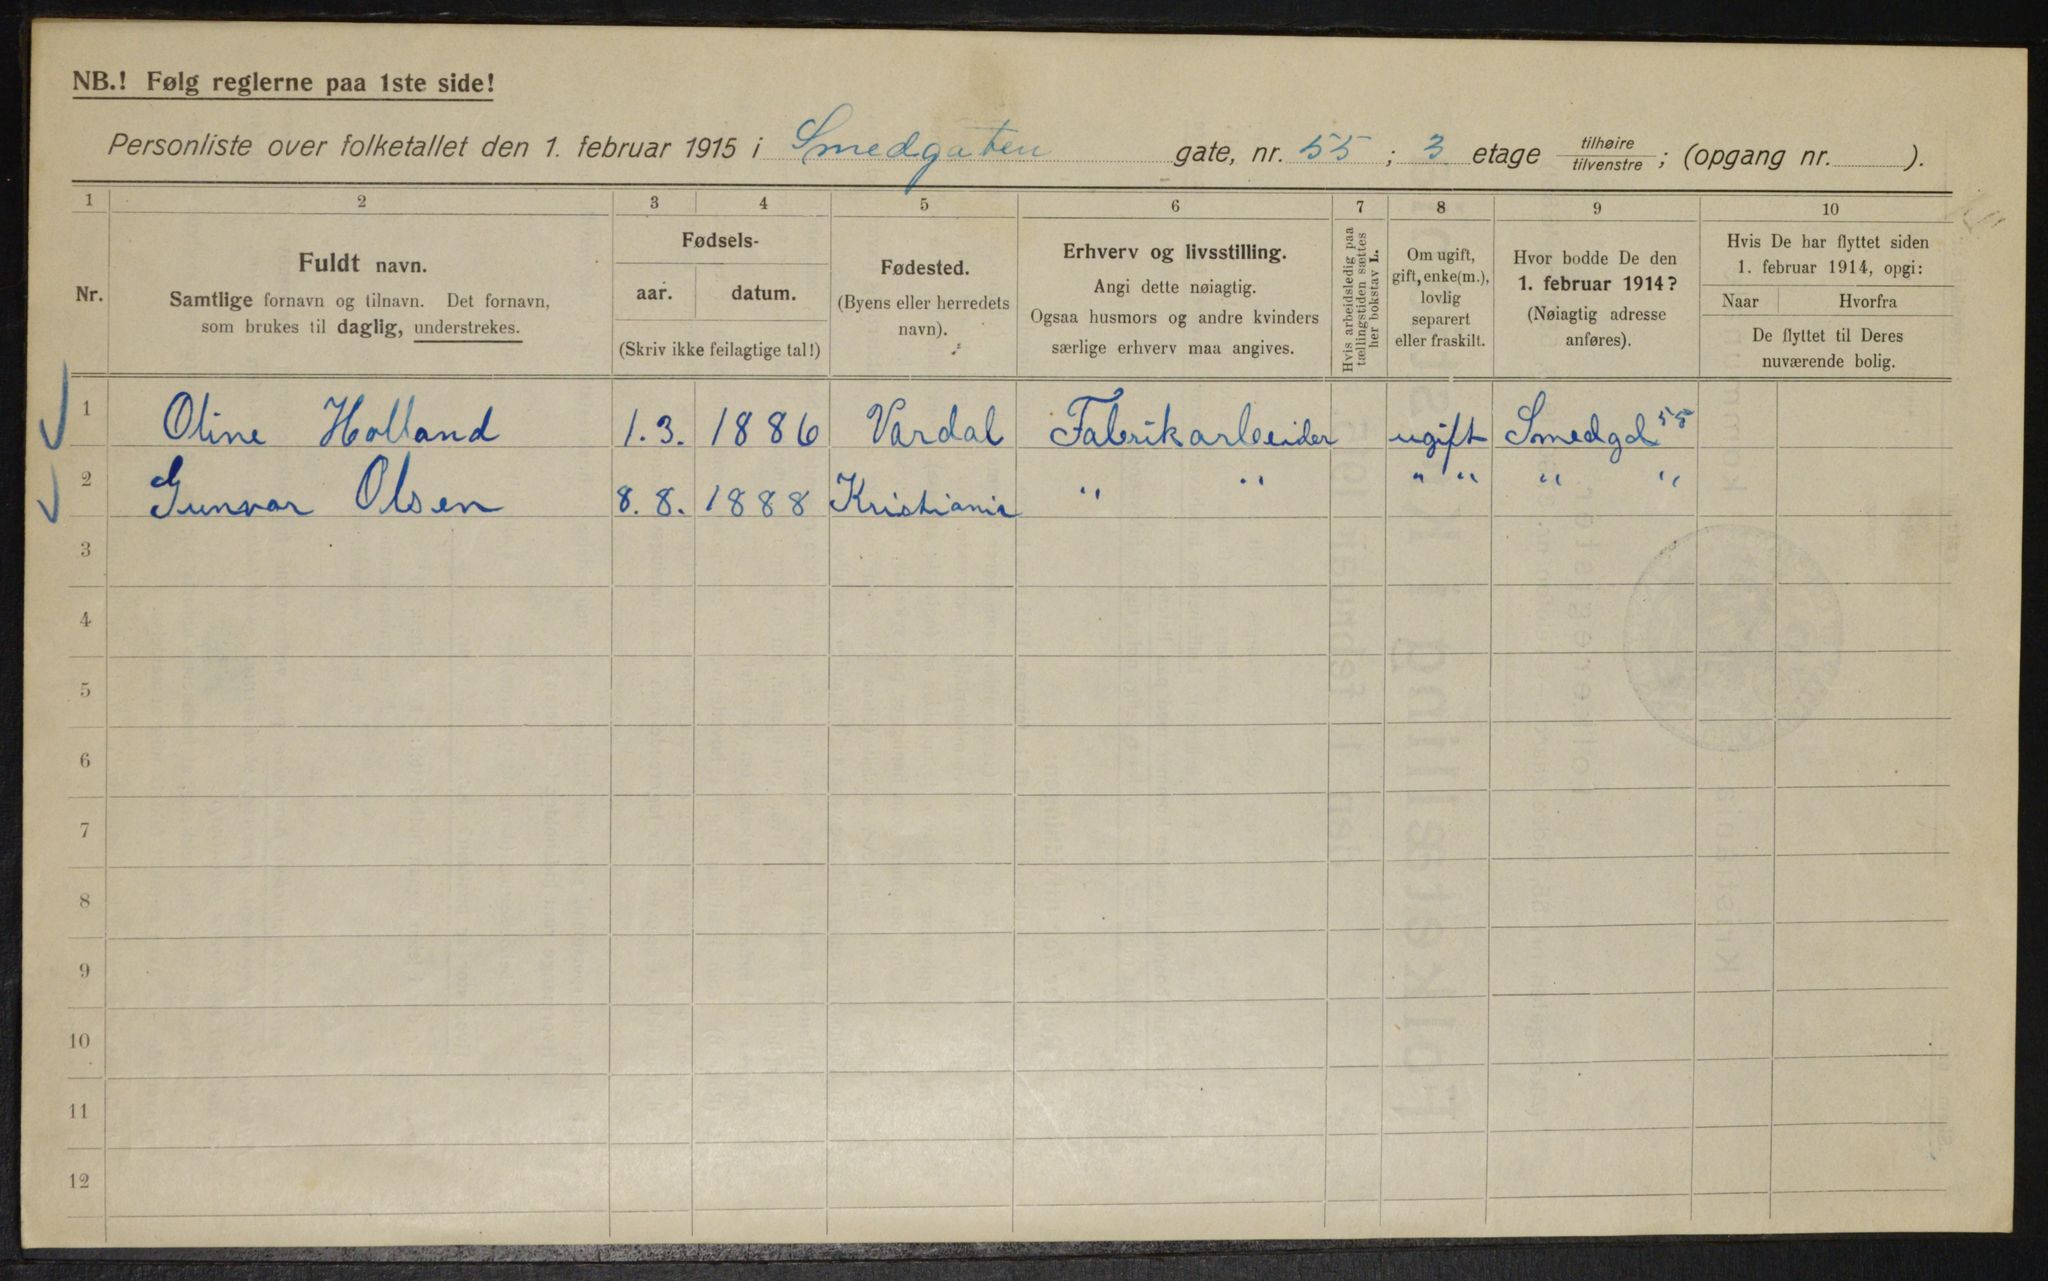 NB.! Følg reglerne paa 1ste side!
Personliste over folketallet den 1. februar 1915 i Smedgaten gate, nr. 55 ; 3 etage tilhøire / tilvenstre ; (opgang nr. ).
1 2 3 4 5 6 7 8 9 10
Nr.
Fuldt navn.
Samtlige fornavn og tilnavn. Det fornavn,
som brukes til daglig, understrekes.
Fødsels-
aar. datum.
(Skriv ikke feilagtige tal!)
Fødested.
(Byens eller herredets
navn).
Erhverv og livsstilling.
Angi dette nøiagtig.
Ogsaa husmors og andre kvinders
særlige erhverv maa angives.
Hvis arbeidsledig paa
tællingstiden sættes
her bokstav L.
Om ugift,
gift, enke(m.),
lovlig
separert
eller fraskilt.
Hvor bodde De den
1. februar 1914?
(Nøiagtig adresse
anføres).
Hvis De har flyttet siden
1. februar 1914, opgi:
Naar Hvorfra
De flyttet til Deres
nuværende bolig.
1 Oline Holland 1.3. 1886 Vardal Fabrikarbeider ugift Smedgd 55
2 Gunvor Olsen 8.8. 1888 Kristiania " " " " " "
3
4
5
6
7
8
9
10
11
12